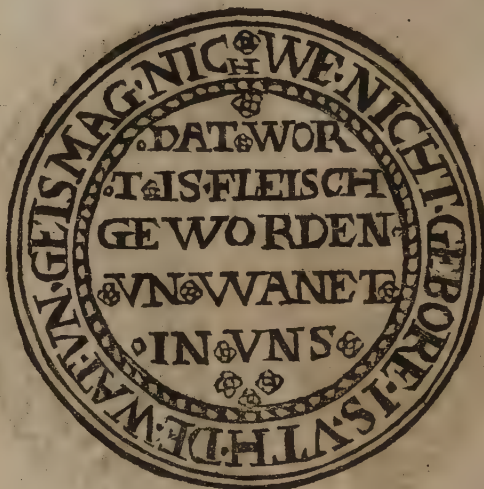 WE·NICHT·GEBORE·IS·VTH·DE·WAT·VN·GEISMAG·NICH
·DAT WOR
·T IS·FLEISCH
GEWORDEN·
VN WANET
·IN VNS